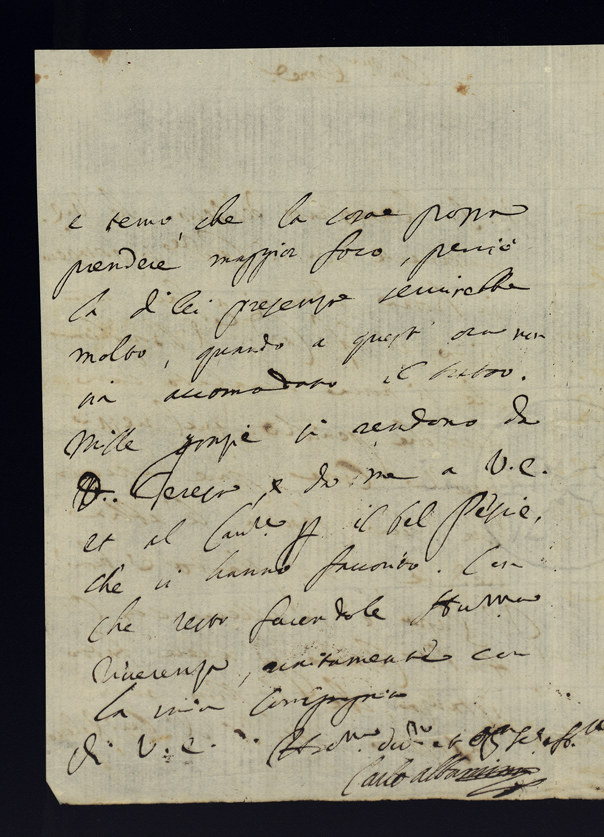 e temo, che la cosa possa
prendere maggior foco, perciò
la di lei presenza servirebbe
molto, quando a quest' ora non
sia accomodato il tutto.
Mille grazie si rendono da
D. Teresa, e da me a V. E.
et al Cav.re p il bel Pesce,
che ci hanno favorito. Con
che resto facendole
riverenza, unitamente con
la mia Compagnia
di V. E.
Carlo Albacini